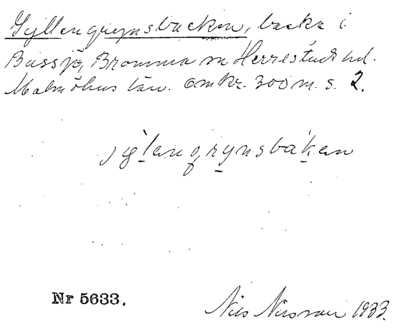 Gyllengrynsbacken, backe i
Bussjö, Bromma sn Herrestads hd.
Malmöhus län. Omkr. 300 m. s. 2.
Nr 5633.
Nils Nilsson 1933.